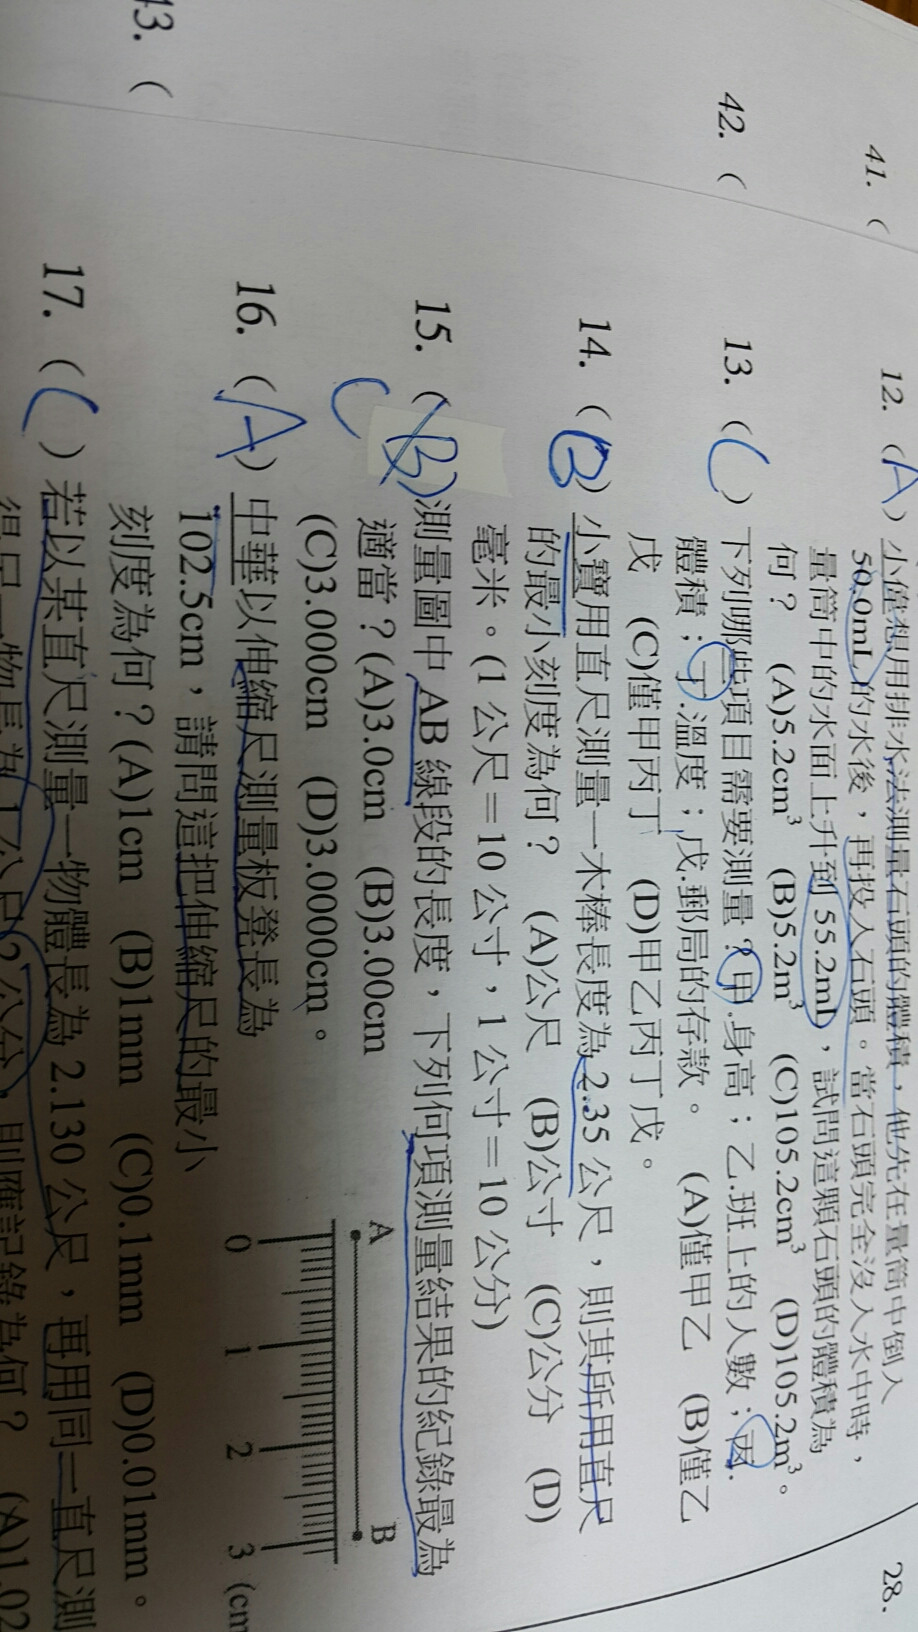 41. (
42. (
43. (
28.
12. (A) 小億想用排水法測量石頭的體積，他先在量筒中倒入
50.0mL 的水後，再投入石頭。當石頭完全沒入水中時，
量筒中的水面上升到 55.2mL，試問這顆石頭的體積為
何？ (A)5.2cm³ (B)5.2m³ (C)105.2cm³ (D)105.2m³。
13. (C) 下列哪些項目需要測量？甲.身高；乙.班上的人數；丙.
體積；丁.溫度；戊.郵局的存款。 (A)僅甲乙 (B)僅乙
戊 (C)僅甲丙丁 (D)甲乙丙丁戊。
14. (B) 小寶用直尺測量一木棒長度為 2.35 公尺，則其所用直尺
的最小刻度為何？ (A)公尺 (B)公寸 (C)公分 (D)
毫米。(1 公尺＝10 公寸，1 公寸＝10 公分)
15. (B) 測量圖中 AB 線段的長度，下列何項測量結果的紀錄最為
C
適當？(A)3.0cm (B)3.00cm
(C)3.000cm (D)3.0000cm。
A B
0 1 2 3 (cm
16. (A) 中華以伸縮尺測量板凳長為
102.5cm，請問這把伸縮尺的最小
刻度為何？(A)1cm (B)1mm (C)0.1mm (D)0.01mm。
17. (C) 若以某直尺測量一物體長為 2.130 公尺，再用同一直尺測
得另一物長為 1 公尺 2 公分，則應記錄為何？ (A)1.02